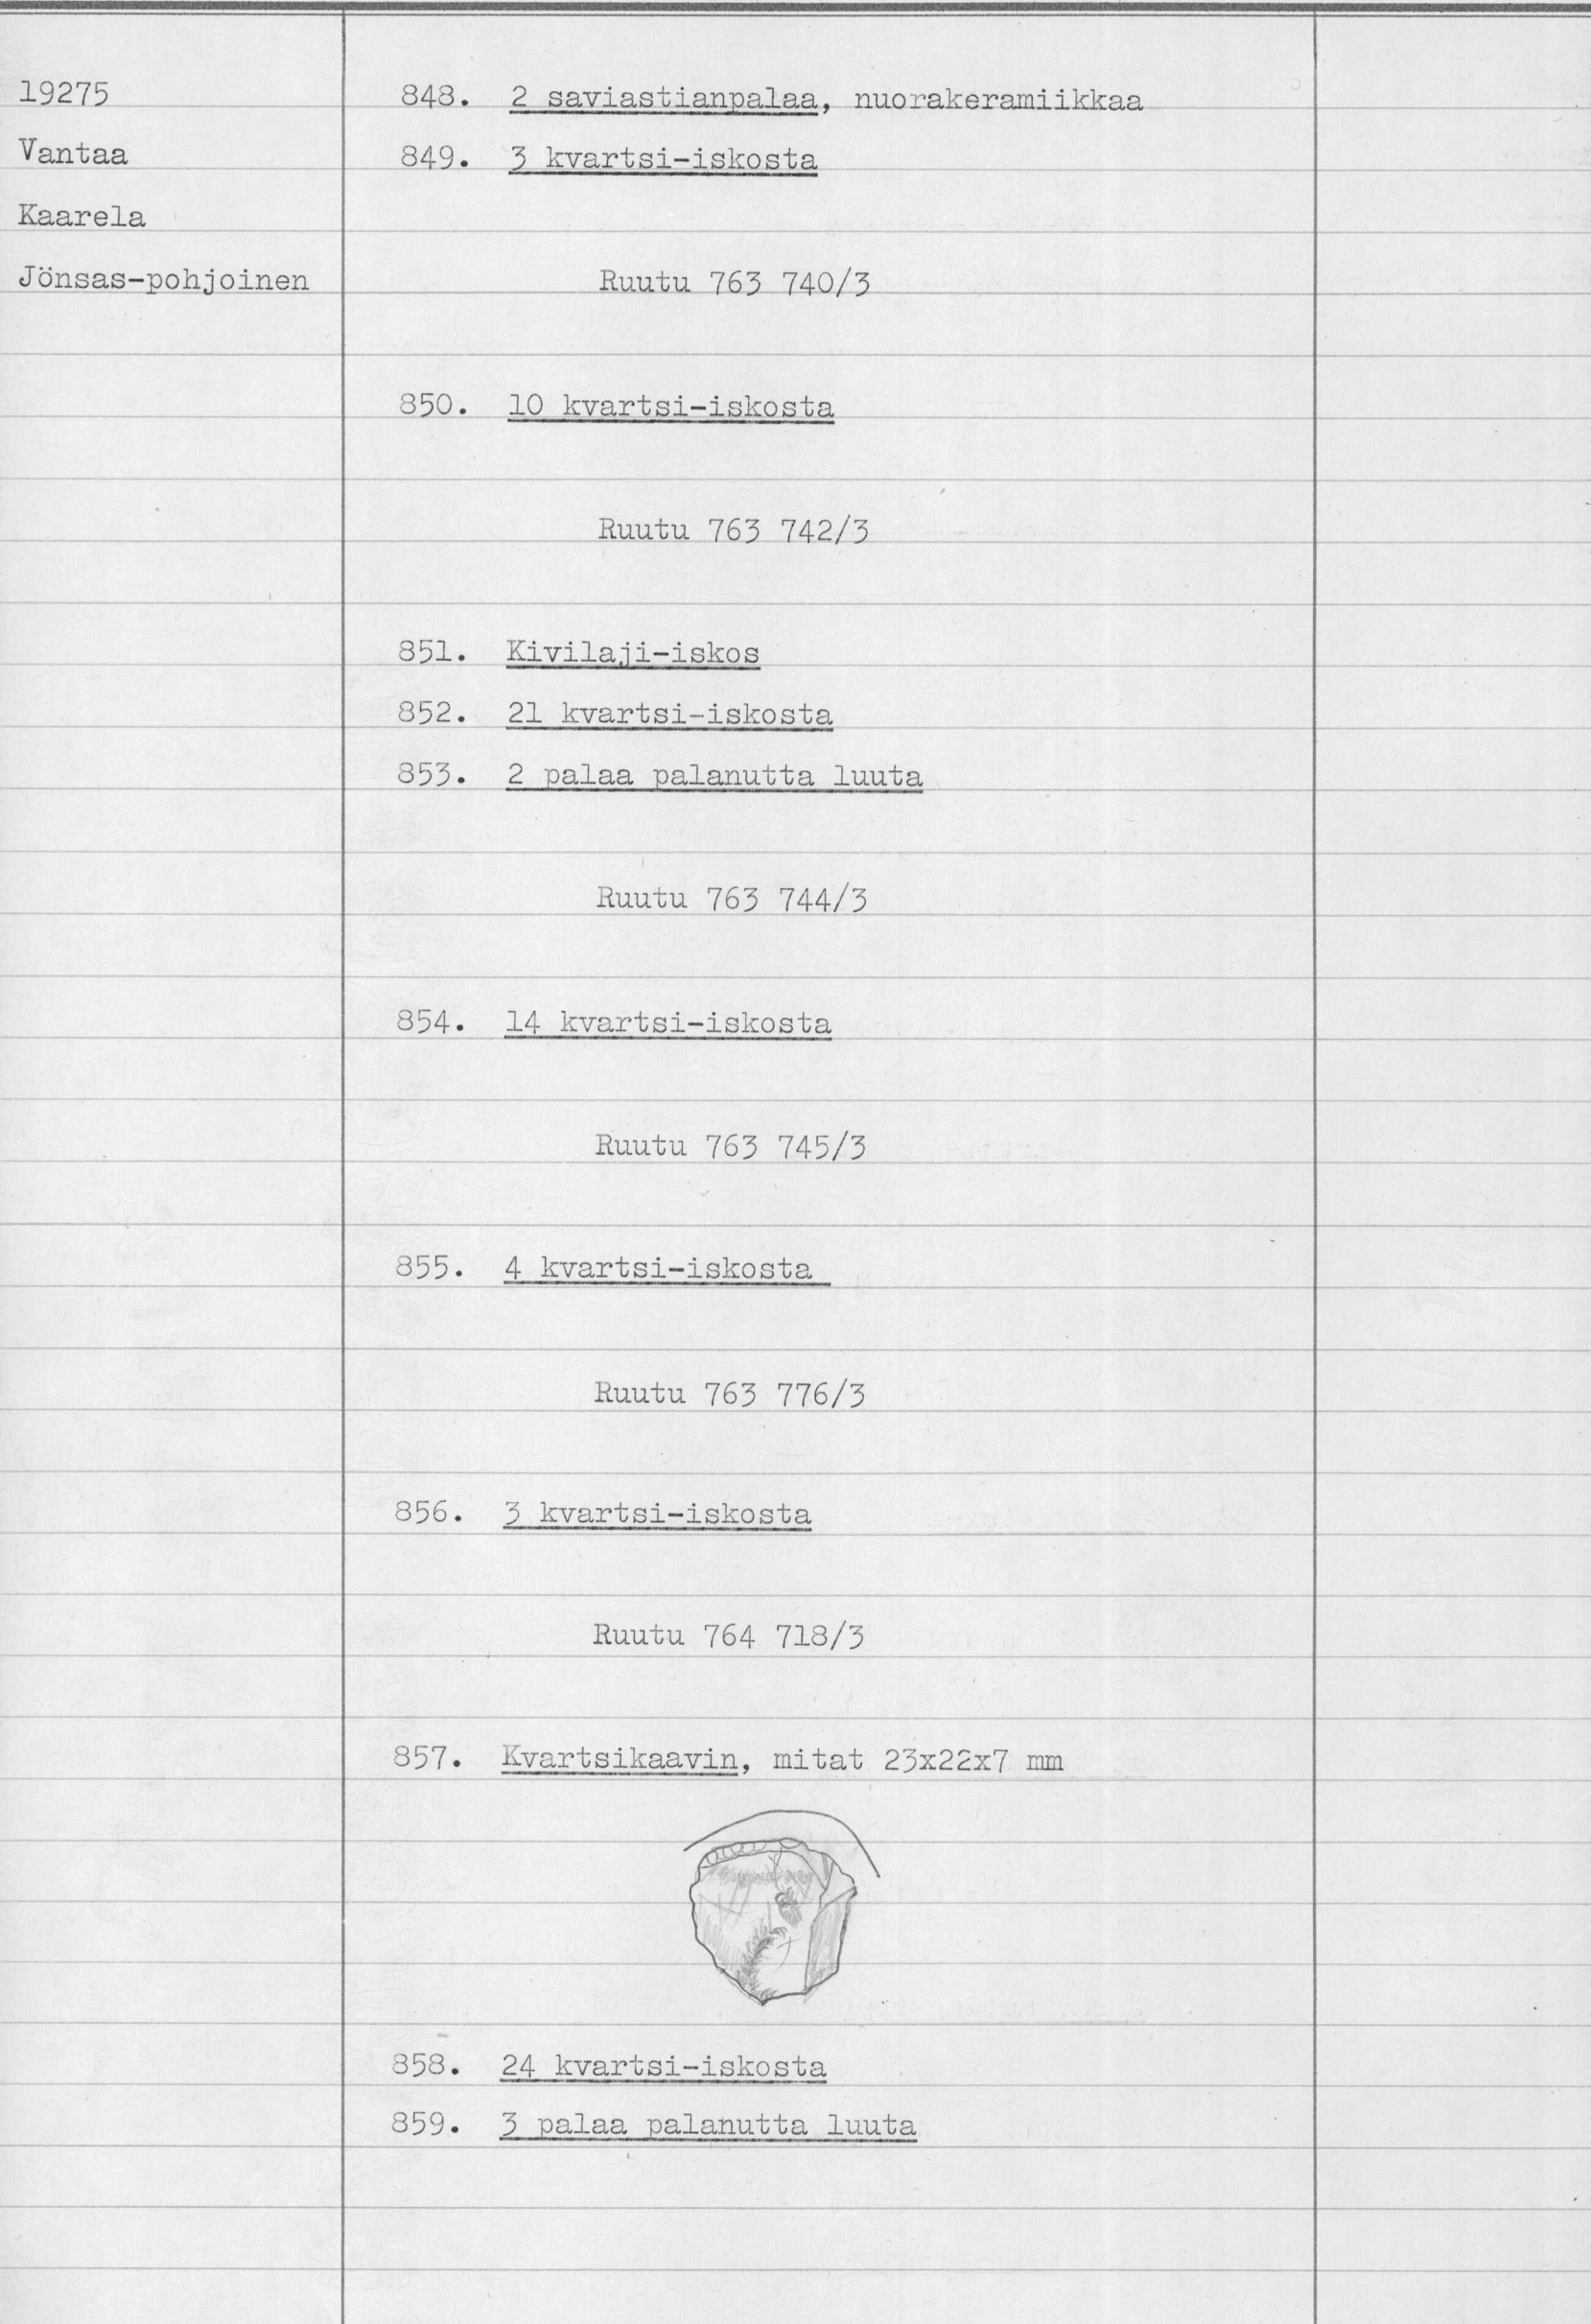 19275
Vantaa
Kaarela
Jönsas-pohjoinen
848. 2 saviastianpalaa, nuorakeramiikkaa
849. 3 kvartsi-iskosta
Ruutu 763 740/3
850. 10 kvartsi-iskosta
Ruutu 763 742/3
851. Kivilaji-iskos
852. 21 kvartsi-iskosta
853. 2 palaa palanutta luuta
Ruutu 763 744/3
854. 14 kvartsi-iskosta
Ruutu 763 745/3
855. 4 kvartsi-iskosta
Ruutu 763 776/3
856. 3 kvartsi-iskosta
Ruutu 764 718/3
857. Kvartsikaavin, mitat 23x22x7 mm
858. 24 kvartsi-iskosta
859. 3 palaa palanutta luuta